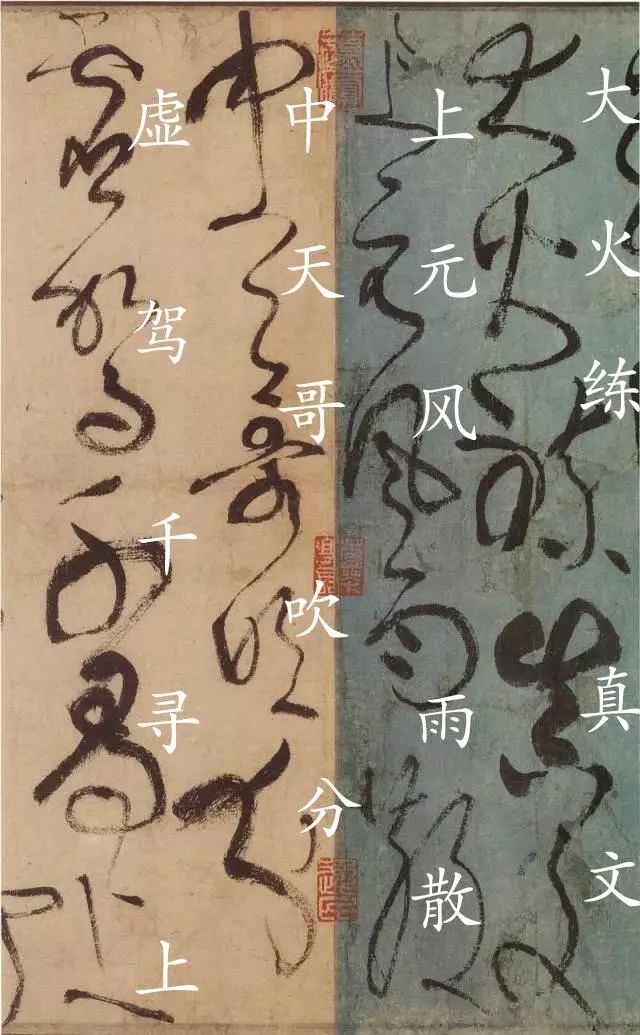 大火练真文
上元风雨散
中天哥吹分
虚驾千寻上